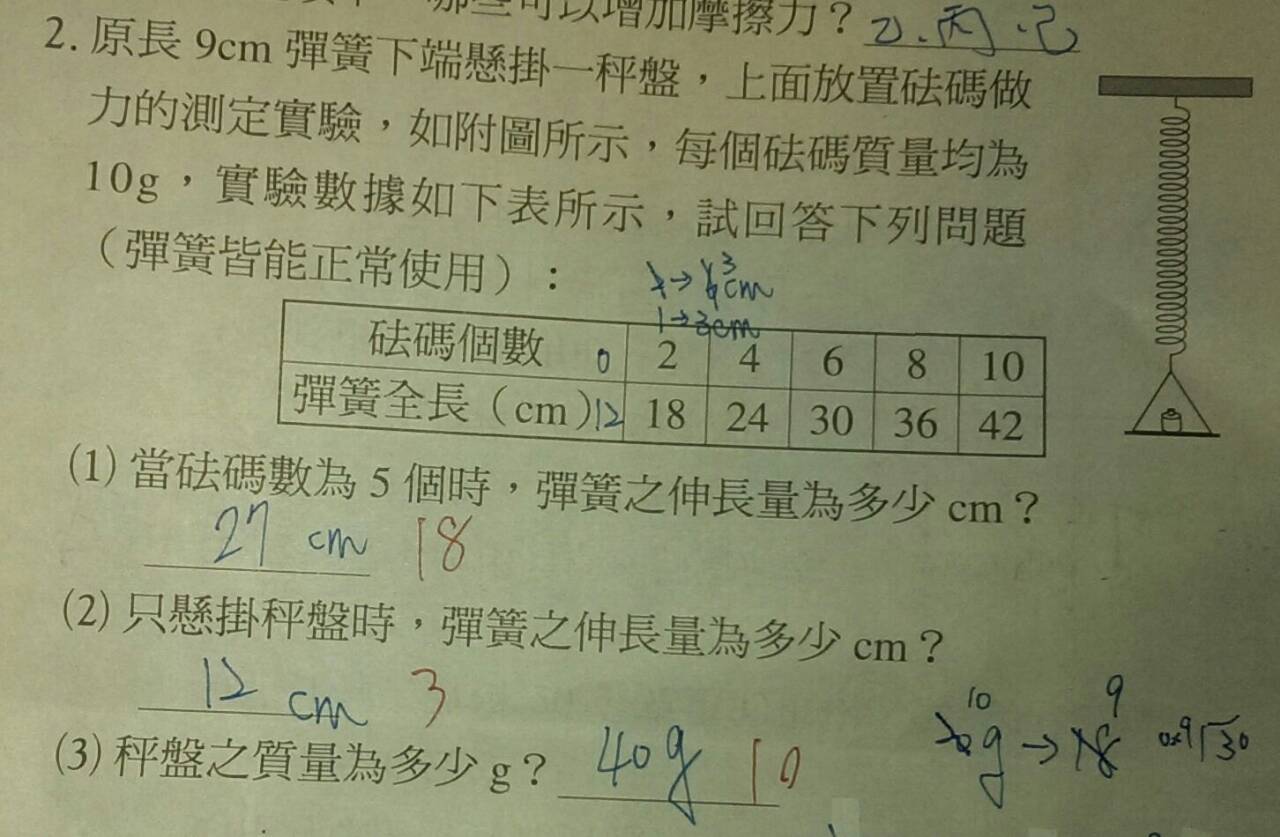 哪些可以增加摩擦力？乙、丙、己
2. 原長 9cm 彈簧下端懸掛一秤盤，上面放置砝碼做
力的測定實驗，如附圖所示，每個砝碼質量均為
10g，實驗數據如下表所示，試回答下列問題
（彈簧皆能正常使用）：
3
→ cm
1→3cm
砝碼個數 0 2 4 6 8 10
彈簧全長（cm）12 18 24 30 36 42
(1) 當砝碼數為 5 個時，彈簧之伸長量為多少 cm？
27 cm 18
(2) 只懸掛秤盤時，彈簧之伸長量為多少 cm？
12 cm 3
10 9
g → 18
(3) 秤盤之質量為多少 g？ 40g 10